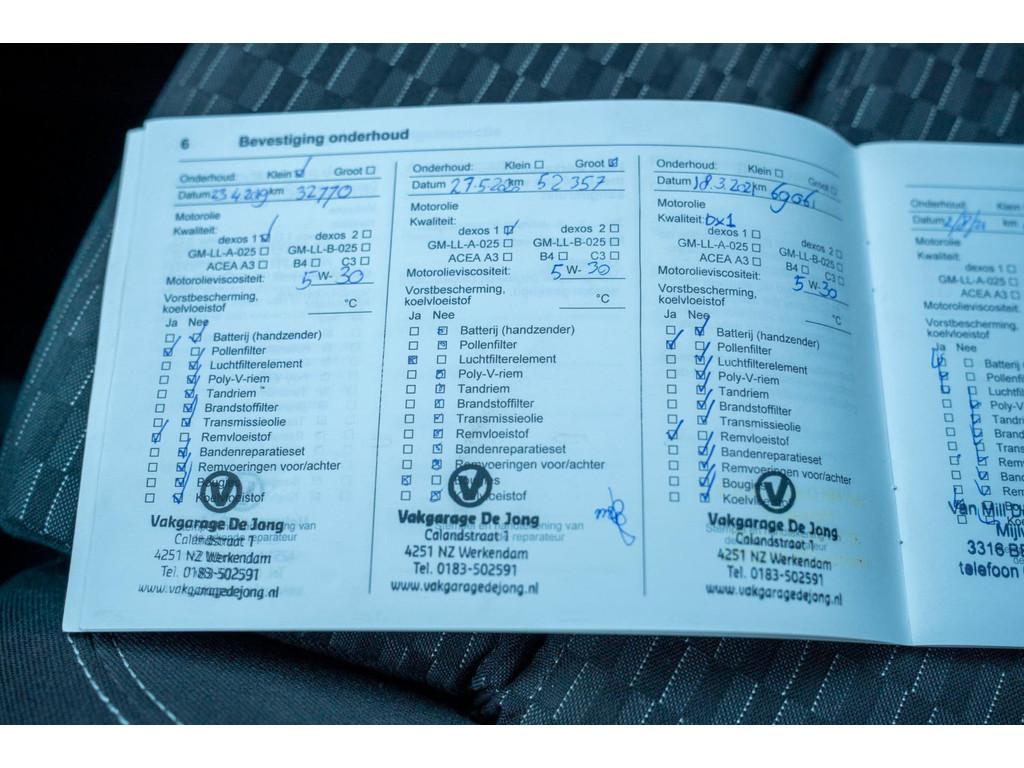 6 Bevestiging onderhoud
Onderhoud: Klein Groot
Datum 23 4 2019 km 32770
Motorolie
Kwaliteit:
dexos 1 dexos 2
GM-LL-A-025 GM-LL-B-025
ACEA A3 B4 C3
Motorolieviscositeit: 5 W- 30
Vorstbescherming,
koelvloeistof °C
Ja Nee
Batterij (handzender)
Pollenfilter
Luchtfilterelement
Poly-V-riem
Tandriem
Brandstoffilter
Transmissieolie
Remvloeistof
Bandenreparatieset
Remvoeringen voor/achter
Bougies
Koelvloeistof
Vakgarage De Jong
Calandstraat 1
4251 NZ Werkendam
Tel. 0183-502591
www.vakgaragedejong.nl
Onderhoud: Klein Groot
Datum 27.5.2020 km 52 357
Motorolie
Kwaliteit:
dexos 1 dexos 2
GM-LL-A-025 GM-LL-B-025
ACEA A3 B4 C3
Motorolieviscositeit: 5 W- 30
Vorstbescherming,
koelvloeistof °C
Ja Nee
Batterij (handzender)
Pollenfilter
Luchtfilterelement
Poly-V-riem
Tandriem
Brandstoffilter
Transmissieolie
Remvloeistof
Bandenreparatieset
Remvoeringen voor/achter
Bougies
Koelvloeistof
Stempel en handtekening van
de reparateur
Vakgarage De Jong
Calandstraat 1
4251 NZ Werkendam
Tel. 0183-502591
www.vakgaragedejong.nl
Onderhoud: Klein Groot
Datum 18.3.2021 km 69061
Motorolie
Kwaliteit: 0x1
dexos 1 dexos 2
GM-LL-A-025 GM-LL-B-025
ACEA A3 B4 C3
Motorolieviscositeit: 5 W-30
Vorstbescherming,
koelvloeistof °C
Ja Nee
Batterij (handzender)
Pollenfilter
Luchtfilterelement
Poly-V-riem
Tandriem
Brandstoffilter
Transmissieolie
Remvloeistof
Bandenreparatieset
Remvoeringen voor/achter
Bougies
Koelvloeistof
Vakgarage De Jong
Calandstraat 1
4251 NZ Werkendam
Tel. 0183-502591
www.vakgaragedejong.nl
Onderhoud: Klein
Datum km
Motorolie
Kwaliteit:
dexos 1
GM-LL-A-025
ACEA A3
Motorolieviscositeit:
Vorstbescherming,
koelvloeistof
Ja Nee
Batterij
Pollenfi
Luchtfil
Poly-V-
Tandri
Brand
Trans
Rem
Band
Rem
Van Mill
Mijl
3316 B
telefoon